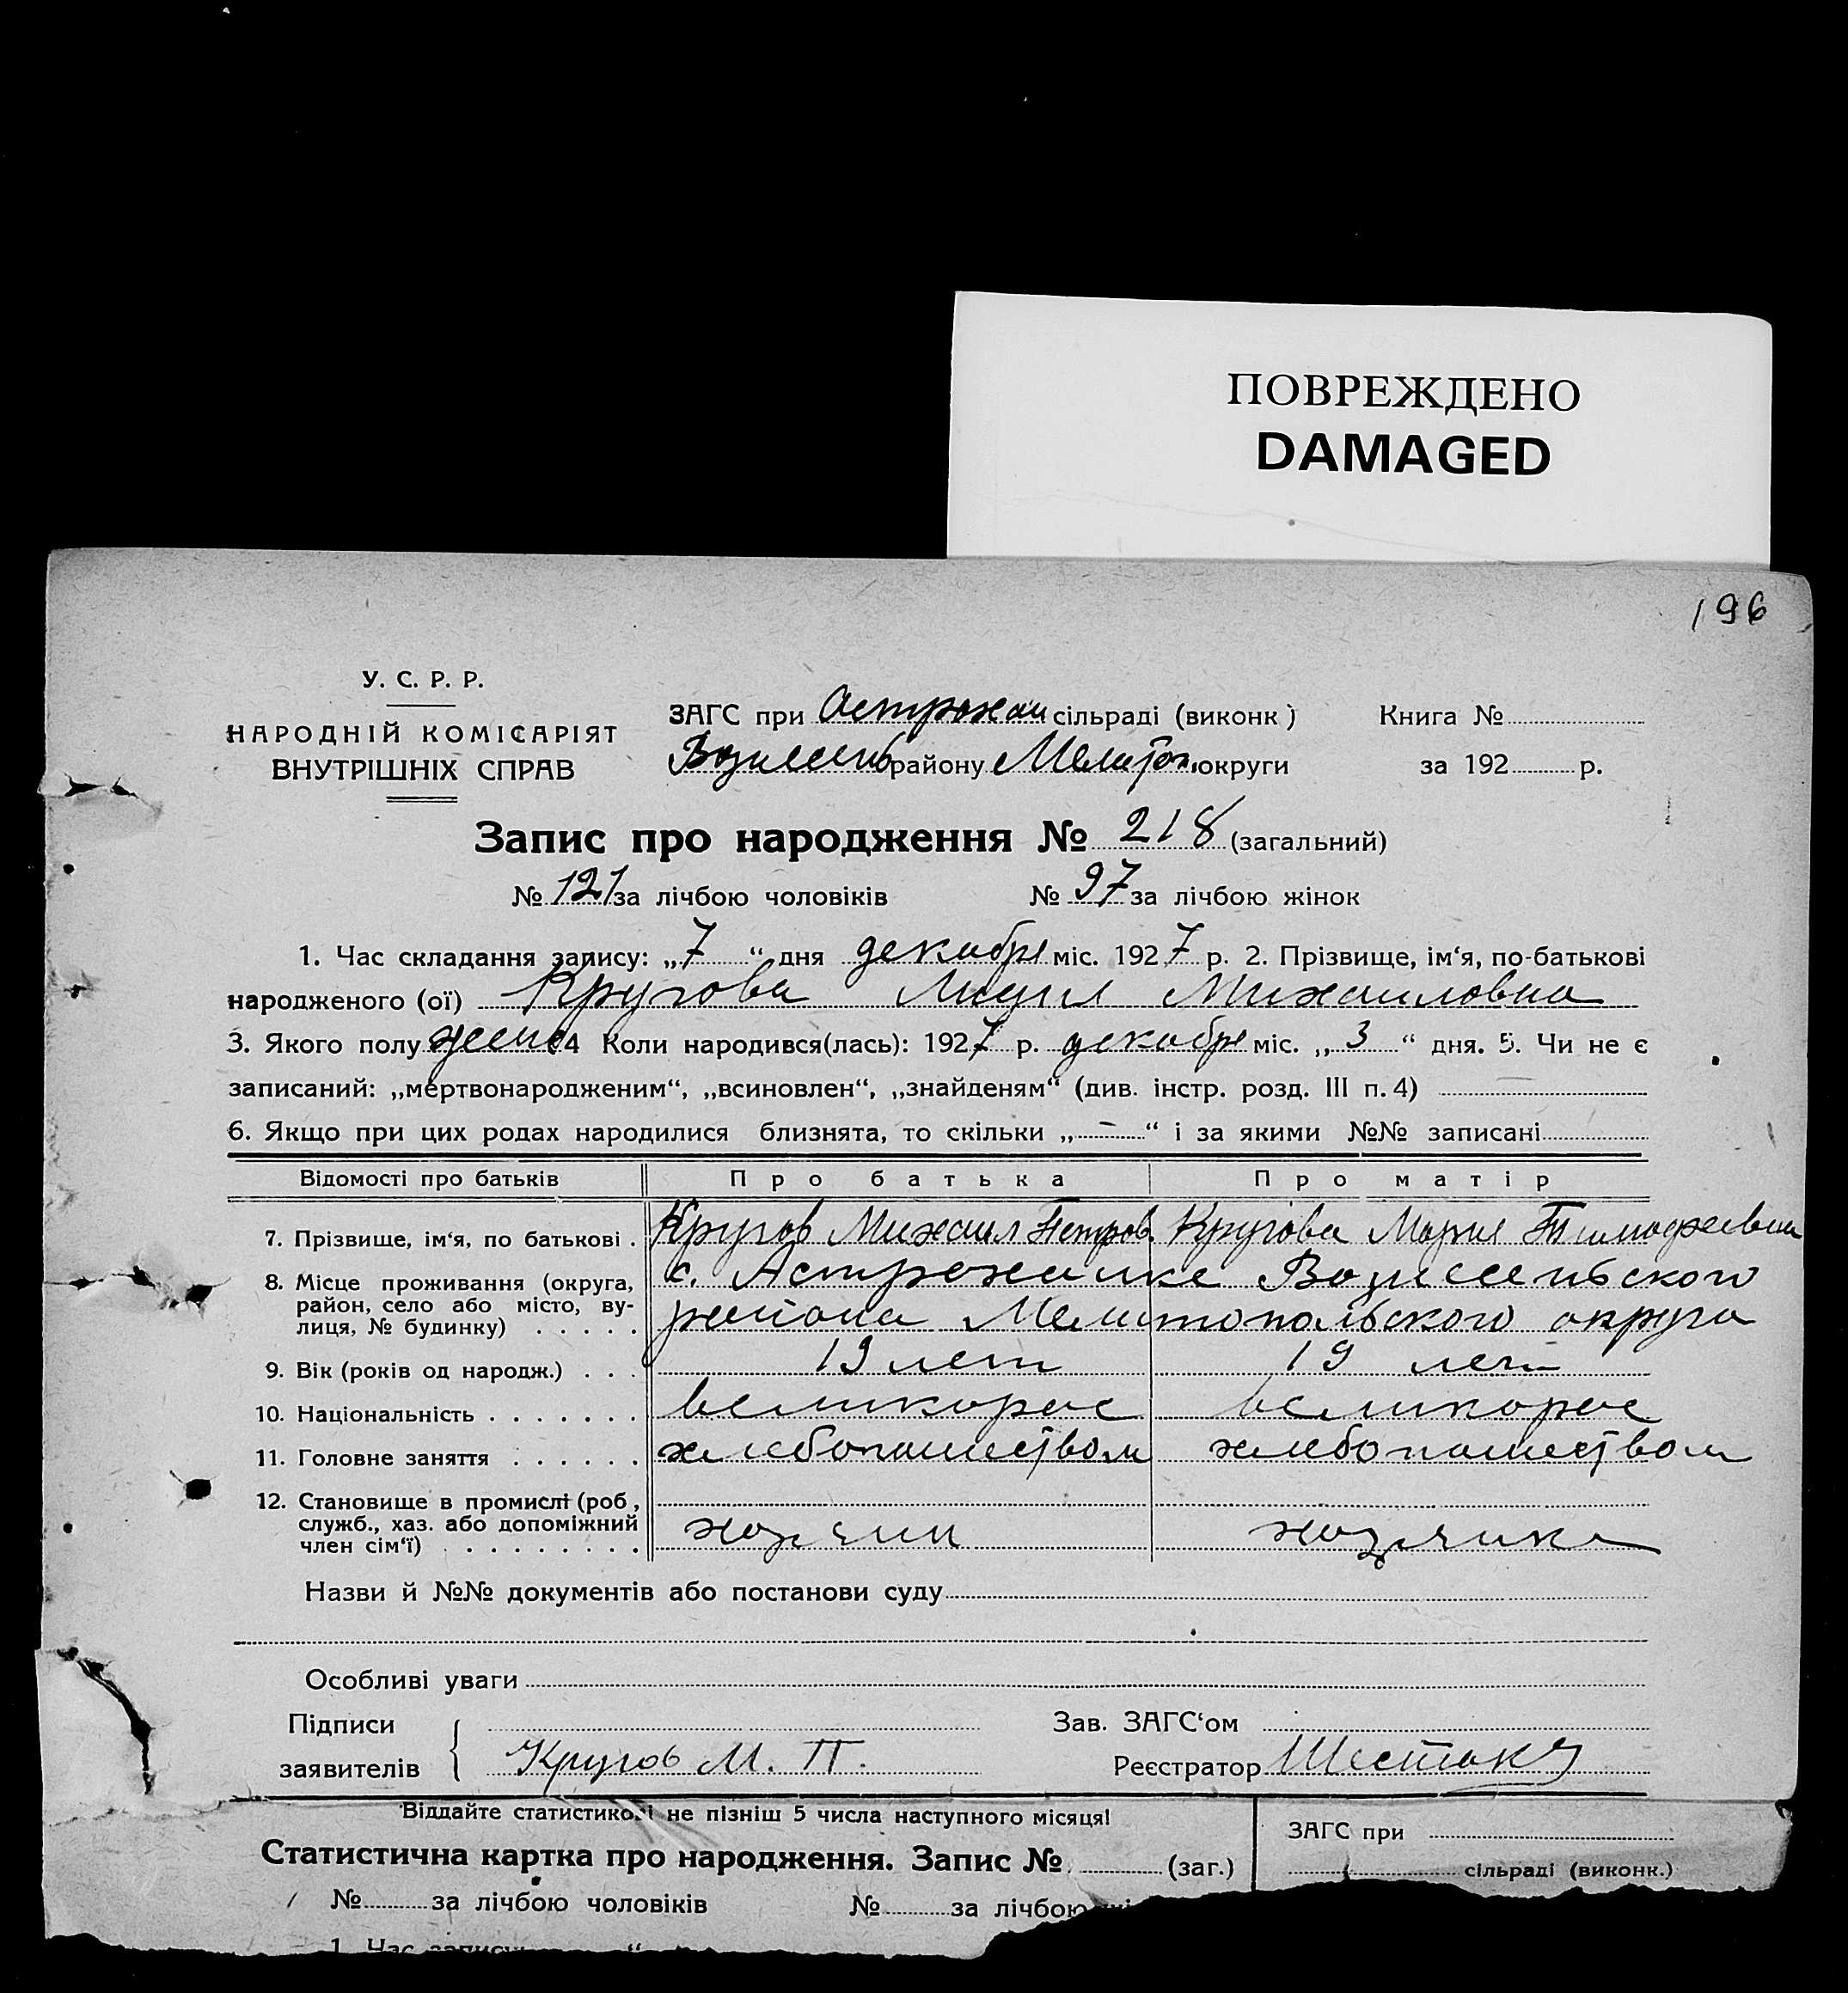 ПОВРЕЖДЕНО
DAMAGED
196
У. С. Р. Р.
НАРОДНІЙ КОМІСАРІЯТ
ВНУТРІШНІХ СПРАВ
ЗАГС при Астрахан сільраді (виконк)
Книга №
Вознесенб району Мелитоп. округи
за 192 р.
Запис про народження № 218 (загальний)
№ 121 за лічбою чоловіків № 97 за лічбою жінок
1. Час складання запису: „7“ дня декабря міс. 1927 р. 2. Прізвище, ім‘я, по-батькові
народженого (ої) Кругова Лидия Михаиловна
3. Якого полу женс 4 Коли народився(лась): 1927 р. декабря міс. „3“ дня. 5. Чи не є
записаний: „мертвонародженим“, „всиновлен“, „знайденям“ (див. інстр. розд. III п. 4) —
6. Якщо при цих родах народилися близнята, то скільки „—“ і за якими №№ записані
Відомості про батьків Про батька Про матір
7. Прізвище, ім‘я, по батькові . Кругов Михаил Петров. Кругова Мария Тимофеевна
8. Місце проживання (округа, район, село або місто, вулиця, № будинку) . . . . . с. Астраханке Вознесеньского
района Мелитопольского округа
9. Вік (років од народж.) . . . 19 лет 19 лет
10. Національність . . . . . . . великорос великорос
11. Головне заняття . . . . . . хлебопашеством хлебопашеством
12. Становище в промислі (роб, служб., хаз. або допоміжний
член сім‘ї) . . . . . . . . . хозяин хозяика
Назви й №№ документів або постанови суду
Особливі уваги
Підписи
заявителів { Кругов М. П.
Зав. ЗАГС‘ом
Реєстратор Шестак
Віддайте статистикові не пізніш 5 числа наступного місяця!
Статистична картка про народження. Запис № (заг.)
ЗАГС при
сільраді (виконк.)
№ за лічбою чоловіків № за лічбою
1. Час запису: “